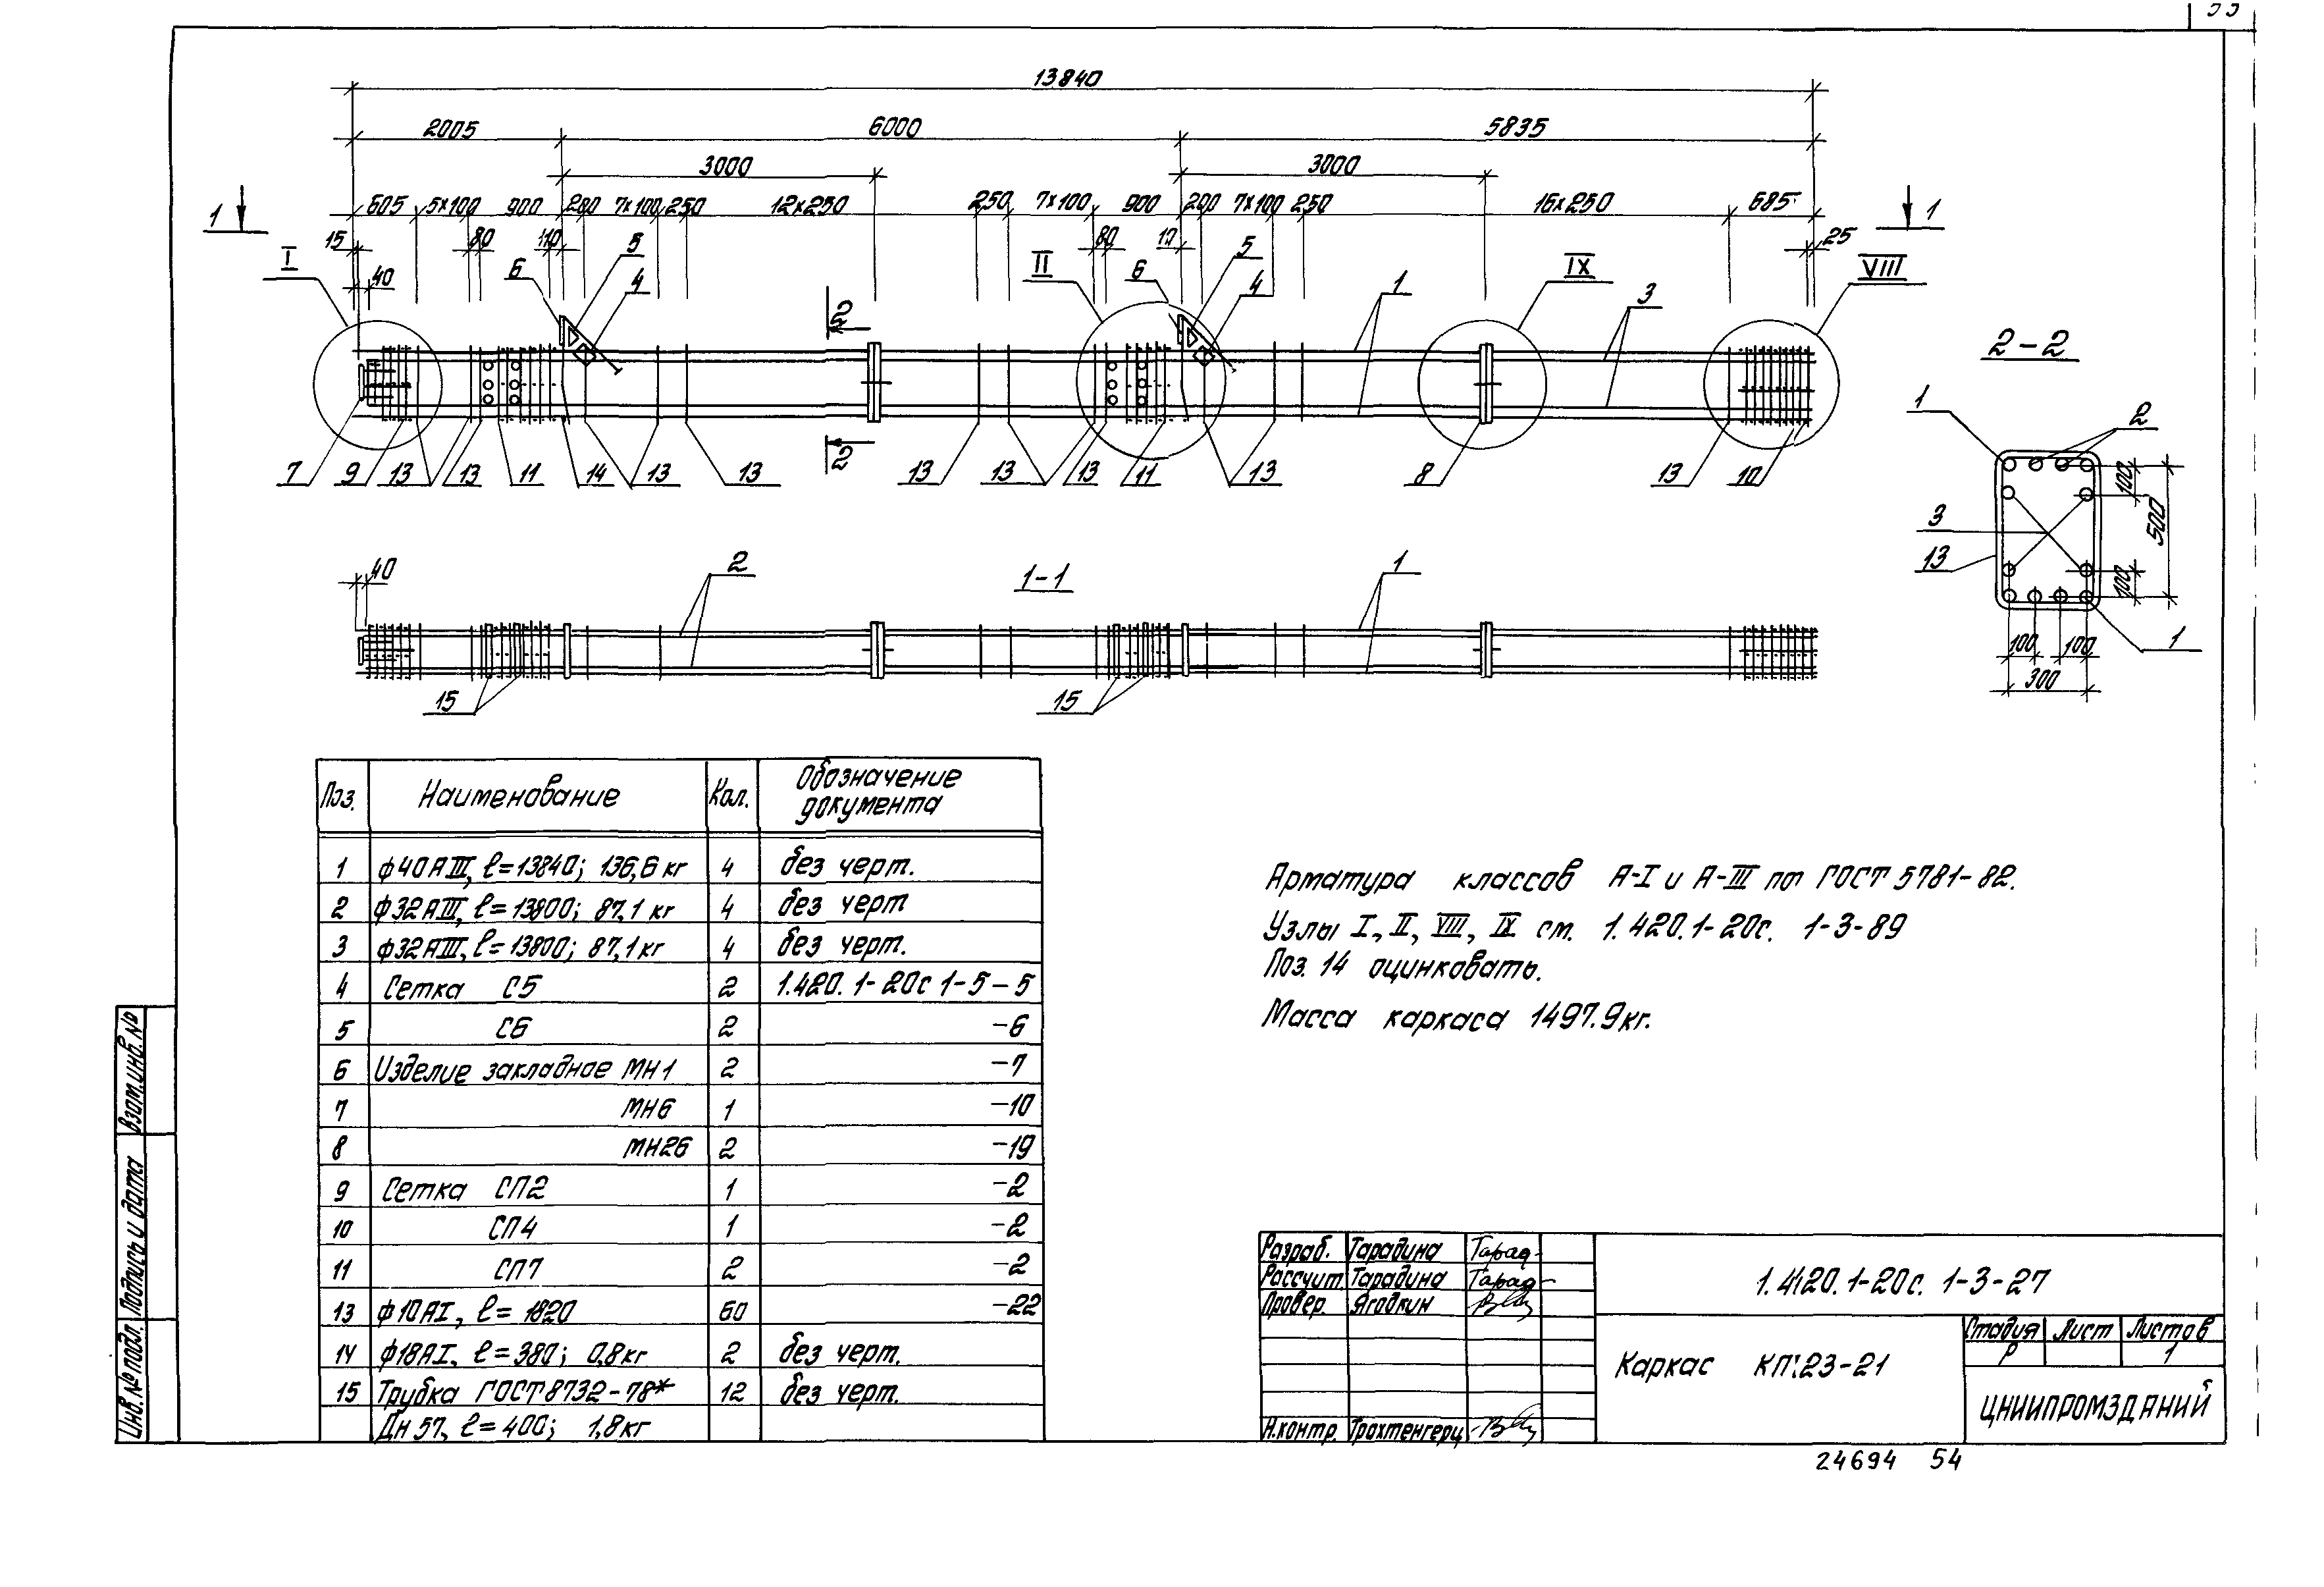 13840
2005 6000 5835
3000 3000
605 5×100 900 200 7×100 250 12×250 250 7×100 900 200 7×100 250 16×250 685
1 1
15 80 110 80 10 25
I 40 6 5 4 II 6 5 4 1 IX 3 VIII
2
2
7 9 13 13 11 14 13 13 13 13 13 11 13 8 13 10
2-2
1 2
100
500
3
13
100
100 100
300
1
40 2 1-1 1
15 15
Поз. Наименование Кол. Обозначение документа
1 ф40АIII, ℓ=13840; 136,6 кг 4 без черт.
2 ф32АIII, ℓ=13800; 87,1 кг 4 без черт
3 ф32АIII, ℓ=13800; 87,1 кг 4 без черт.
4 Сетка С5 2 1.420.1-20с 1-5-5
5 С6 2 -6
6 Изделие закладное МН1 2 -7
7 МН6 1 -10
8 МН26 2 -19
9 Сетка СП2 1 -2
10 СП4 1 -2
11 СП7 2 -2
13 ф10АI, ℓ= 1820 60 -22
14 ф18АI, ℓ=380; 0,8кг 2 без черт.
15 Трубка ГОСТ8732-78* 12 без черт.
Дн 57, ℓ=400; 1,8кг
Арматура классов А-I и А-III по ГОСТ 5781-82.
Узлы I, II, VIII, IX см. 1.420.1-20с. 1-3-89
Поз. 14 оцинковать.
Масса каркаса 1497.9кг.
Взам.инв.№
Подпись и дата
Инв.№ подл.
Разраб. Тарадина Тарад-
Рассчит. Тарадина Тарад-
Провер. Ягодкин
Н.контр. Трахтенгерц
1.420.1-20с. 1-3-27
Каркас КП23-21
Стадия Лист Листов
Р 1
ЦНИИПРОМЗДАНИЙ
24694 54